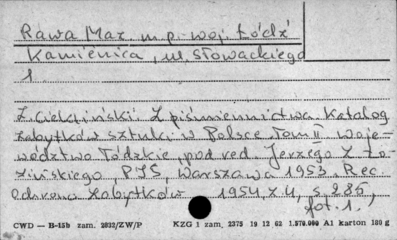 Rawa Maz. m.p. woj. Łódź
Kamienica, ul. Słowackiego
1.
Z. Ciekliński i Z piśmiennictwa. Katalog
zabytków sztuki w Polsce. Tom II woje-
wództwo Łódzkie, pod red. Jerzego Z. Ło-
zińskiego PIS, Warszawa 1953. Rec.
Ochrona Zabytków 1954, z. 4, s. 285,
fot. 1.
CWD — B-15b zam. 2032/ZW/P KZG 1 zam. 2375 19 12 62 1.570.000 A1 karton 180 g